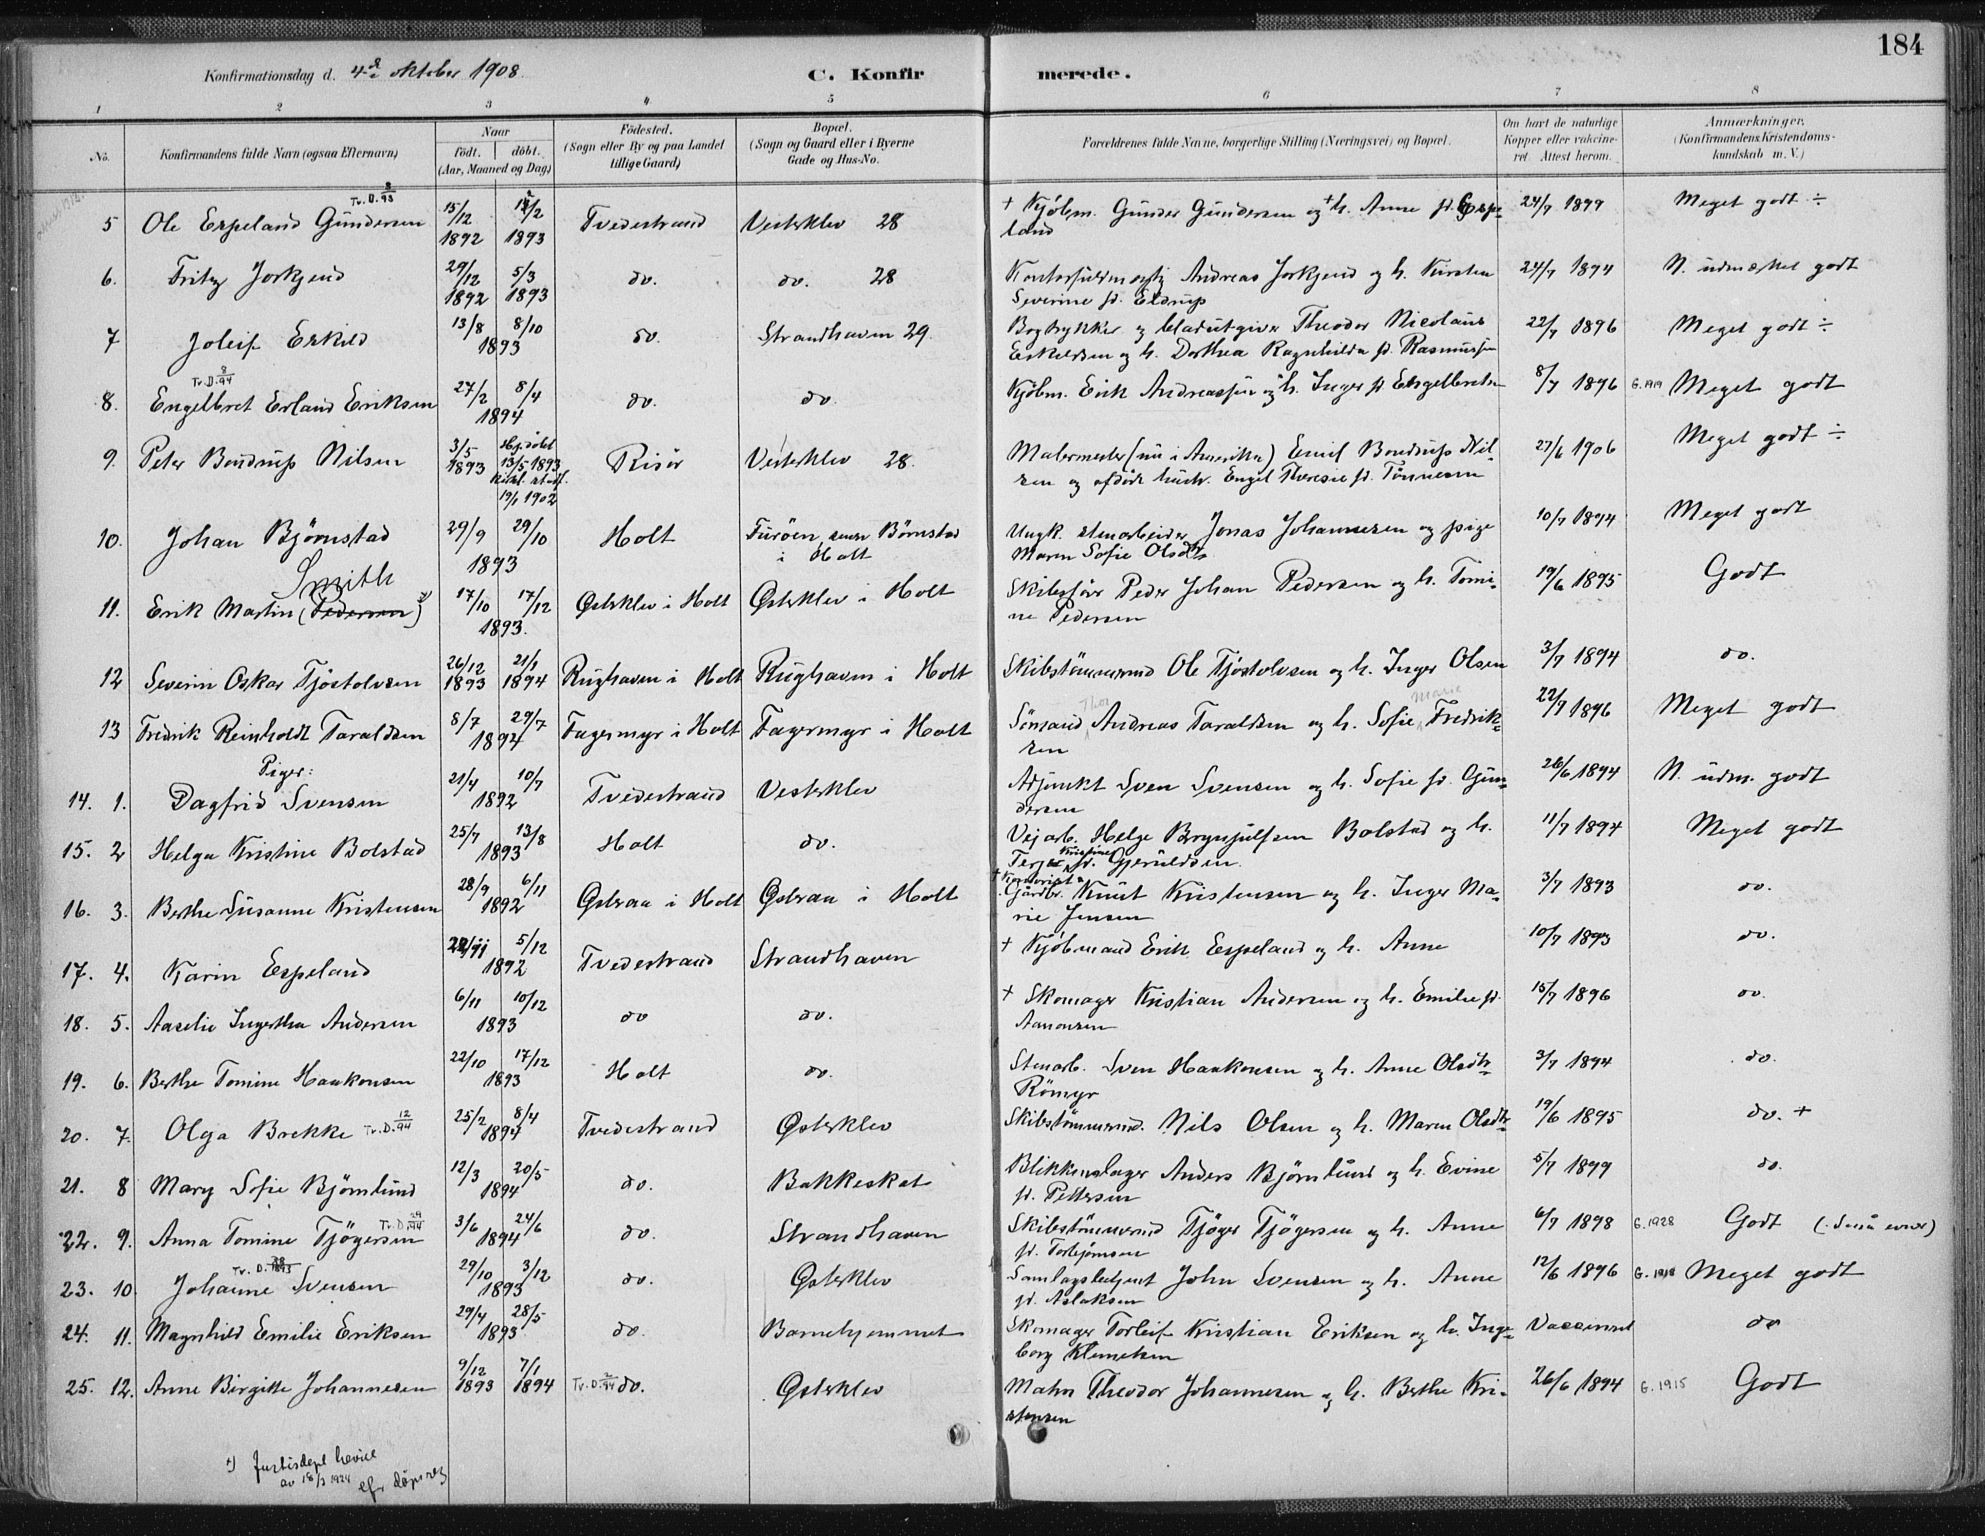 184
Konfirmationsdag d. 4de oktober 1908. C. Konfirmerede.
1 2 3 4 5 6 7 8
No. Konfirmandens fulde Navn (ogsaa Efternavn) Naar födt. döbt. (Aar, Maaned og Dag) Födested. (Sogn eller By og paa Landet tillige Gaard) Bopæl. (Sogn og Gaard eller i Byerne Gade og Hus-No. Forældrenes fulde Navne, borgerlige Stilling (Næringsvei) og Bopæl. Om havt de naturlige Kopper eller vakcineret. Attest herom. Anmærkninger. (Konfirmandens Kristendomskundskab m. V.)
Tv. D. 8/93
5 Ole Espeland Gundersen 15/12 1892 /2 1893 Tvedestrand Vesterklev 28 + Kjøbm. Gunder Gundersen og + h. Anne fd. Espeland 24/7 1899 Meget godt ÷
6. Fritz Jorkjend 29/12 1892 5/3 1893 do. do. 28 Kontorfuldmægtig Andreas Jorkjend og h. Kirsten Severine fd. Eldrup 24/7 1894 N. udmærket godt
7 Joleif Eskild 13/8 8/10 1893 do. Strandhaven 29. Bogtrykker og bladutgiver Theodor Nicolaus Eskildsen og h. Dorthea Ragnhilda fd. Rasmussen 22/7 1896 Meget godt ÷
Tv. D. 8/94
8. Engelbret Erland Eriksen 27/2 8/4 1894 do. do. Kjøbm. Erik Andreassen og h. Inger fd. Engelbretsen 8/7 1896 G. 1919 Meget godt
9. Peter Bondrup Nilsen 3/5 1893 Hj. døbt 13/5 1893 19/1 1902 Risör Vesterklev 28. Malermester (nu i Amerika) Emil Bondrup Nilsen og afdøde hustr. Engel Theresie fd. Tønnesen 27/6 1906 Meget godt ÷
10. Johan Bjørnstad 29/9 29/10 1893 Holt Furöen, Børnstad i Holt Ungk. stenarbeider Jonas Johannesen og pige Maren Sofie Olsdtr 10/7 1894 Meget godt
Smith
11. Erik Martin (Pedersen) 17/10 17/12 1893. Østerklev i Holt Østerklev i Holt Skibsfører Peder Johan Pedersen og h. Tomine Pedersen 19/6 1895 Godt
12 Severin Oskar Tjöstolvsen 26/12 1893 21/1 1894 Rughaven i Holt Rughaven i Holt Skibstömmermd Ole Tjöstolvsen og h. Inger Olsen 3/7 1894 do.
13 Fredrik Reinholdt Taraldsen 8/7 29/7 1894 Fagermyr i Holt Fagermyr i Holt Sömand Andreas Taraldsen og h. Sofie Marie Fredriksen 22/7 1896 Meget godt
Piger:
14. 1. Dagfrid Svensen 21/4 10/7 1892 Tvedestrand Vesterklev Adjunkt Sven Svensen og h. Sofie fd. Gundersen 26/6 1894 N. udm. godt
15. 2 Helga Kristine Bolstad 25/7 13/8 1893 Holt do. Vejarb. Helge Brynjulfsen Bolstad og h. Terje Kristine fd. Gjeruldsen. 11/7 1894 Meget godt
16. 3. Berthe Susanne Kristensen 28/9 6/11 1892 Østeraa i Holt Østeraa i Holt + Gårdbr. Knut Kristensen og h. Inger Marie Jensen 3/7 1893 do.
17. 4. Karin Espeland 5/12 1892 Tvedestrand Strandhaven + Kjøbmand Erik Espeland og h. Anne 10/7 1893 do.
18. 5. Aaselie Ingertha Andersen 6/11 10/12 1893 do do. + Skomager Kristian Andersen og h. Emilie fd. Aanonsen 15/7 1896 do.
19. 6. Berthe Tomine Haakonsen 22/10 17/12 1893 Holt do. Stenarb. Sven Haakonsen og h. Anne Olsdtr Römyr 3/7 1894 do.
20. 7. Olga Brekke Tv. D. 12/94 25/2 8/4 1894 Tvedestrand Østerklev Skibstömmermd. Nils Olsen og h. Maren Olsdtr 19/6 1895 do. +
21. 8 Mary Sofie Bjørnlund 12/3 20/5 1894 do. Bakkeskat Blikkenslager Anders Bjørnlund og h. Evine fd. Pettersen 5/7 1899 do.
22. 9. Anna Tomine Tjögersen Tv. D. 29/94 3/6 24/6 1894 do. Strandhaven Skibstömmermd Tjöger Tjögersen og h. Anne fd. Torbjørnsen 6/7 1898 G. 1928 Godt (Små evner)
23. 10. Johanne Svensen Tv. D. 29/10 3/12 1893 do. Østerklev Samlagsbetjent John Svensen og h. Anne fd. Aslaksen 12/6 1896 G. 1918 Meget godt
24. 11. Magnhild Emilie Eriksen 29/4 28/5 1893 do. Barnehjemmet Skomager Torleif Kristian Eriksen og h. Ingeborg Klemetsen Vaccineret do
25. 12. Anne Birgitte Johannesen 9/12 1893 7/1 1894 Tv. D. 2/94 do. Østerklev Matrn Theodor Johannesen og h. Berthe Kristensen 26/6 1894 G. 1915 Godt
+) Justisdept bevill
av 18/3 1924 efr döpsreg